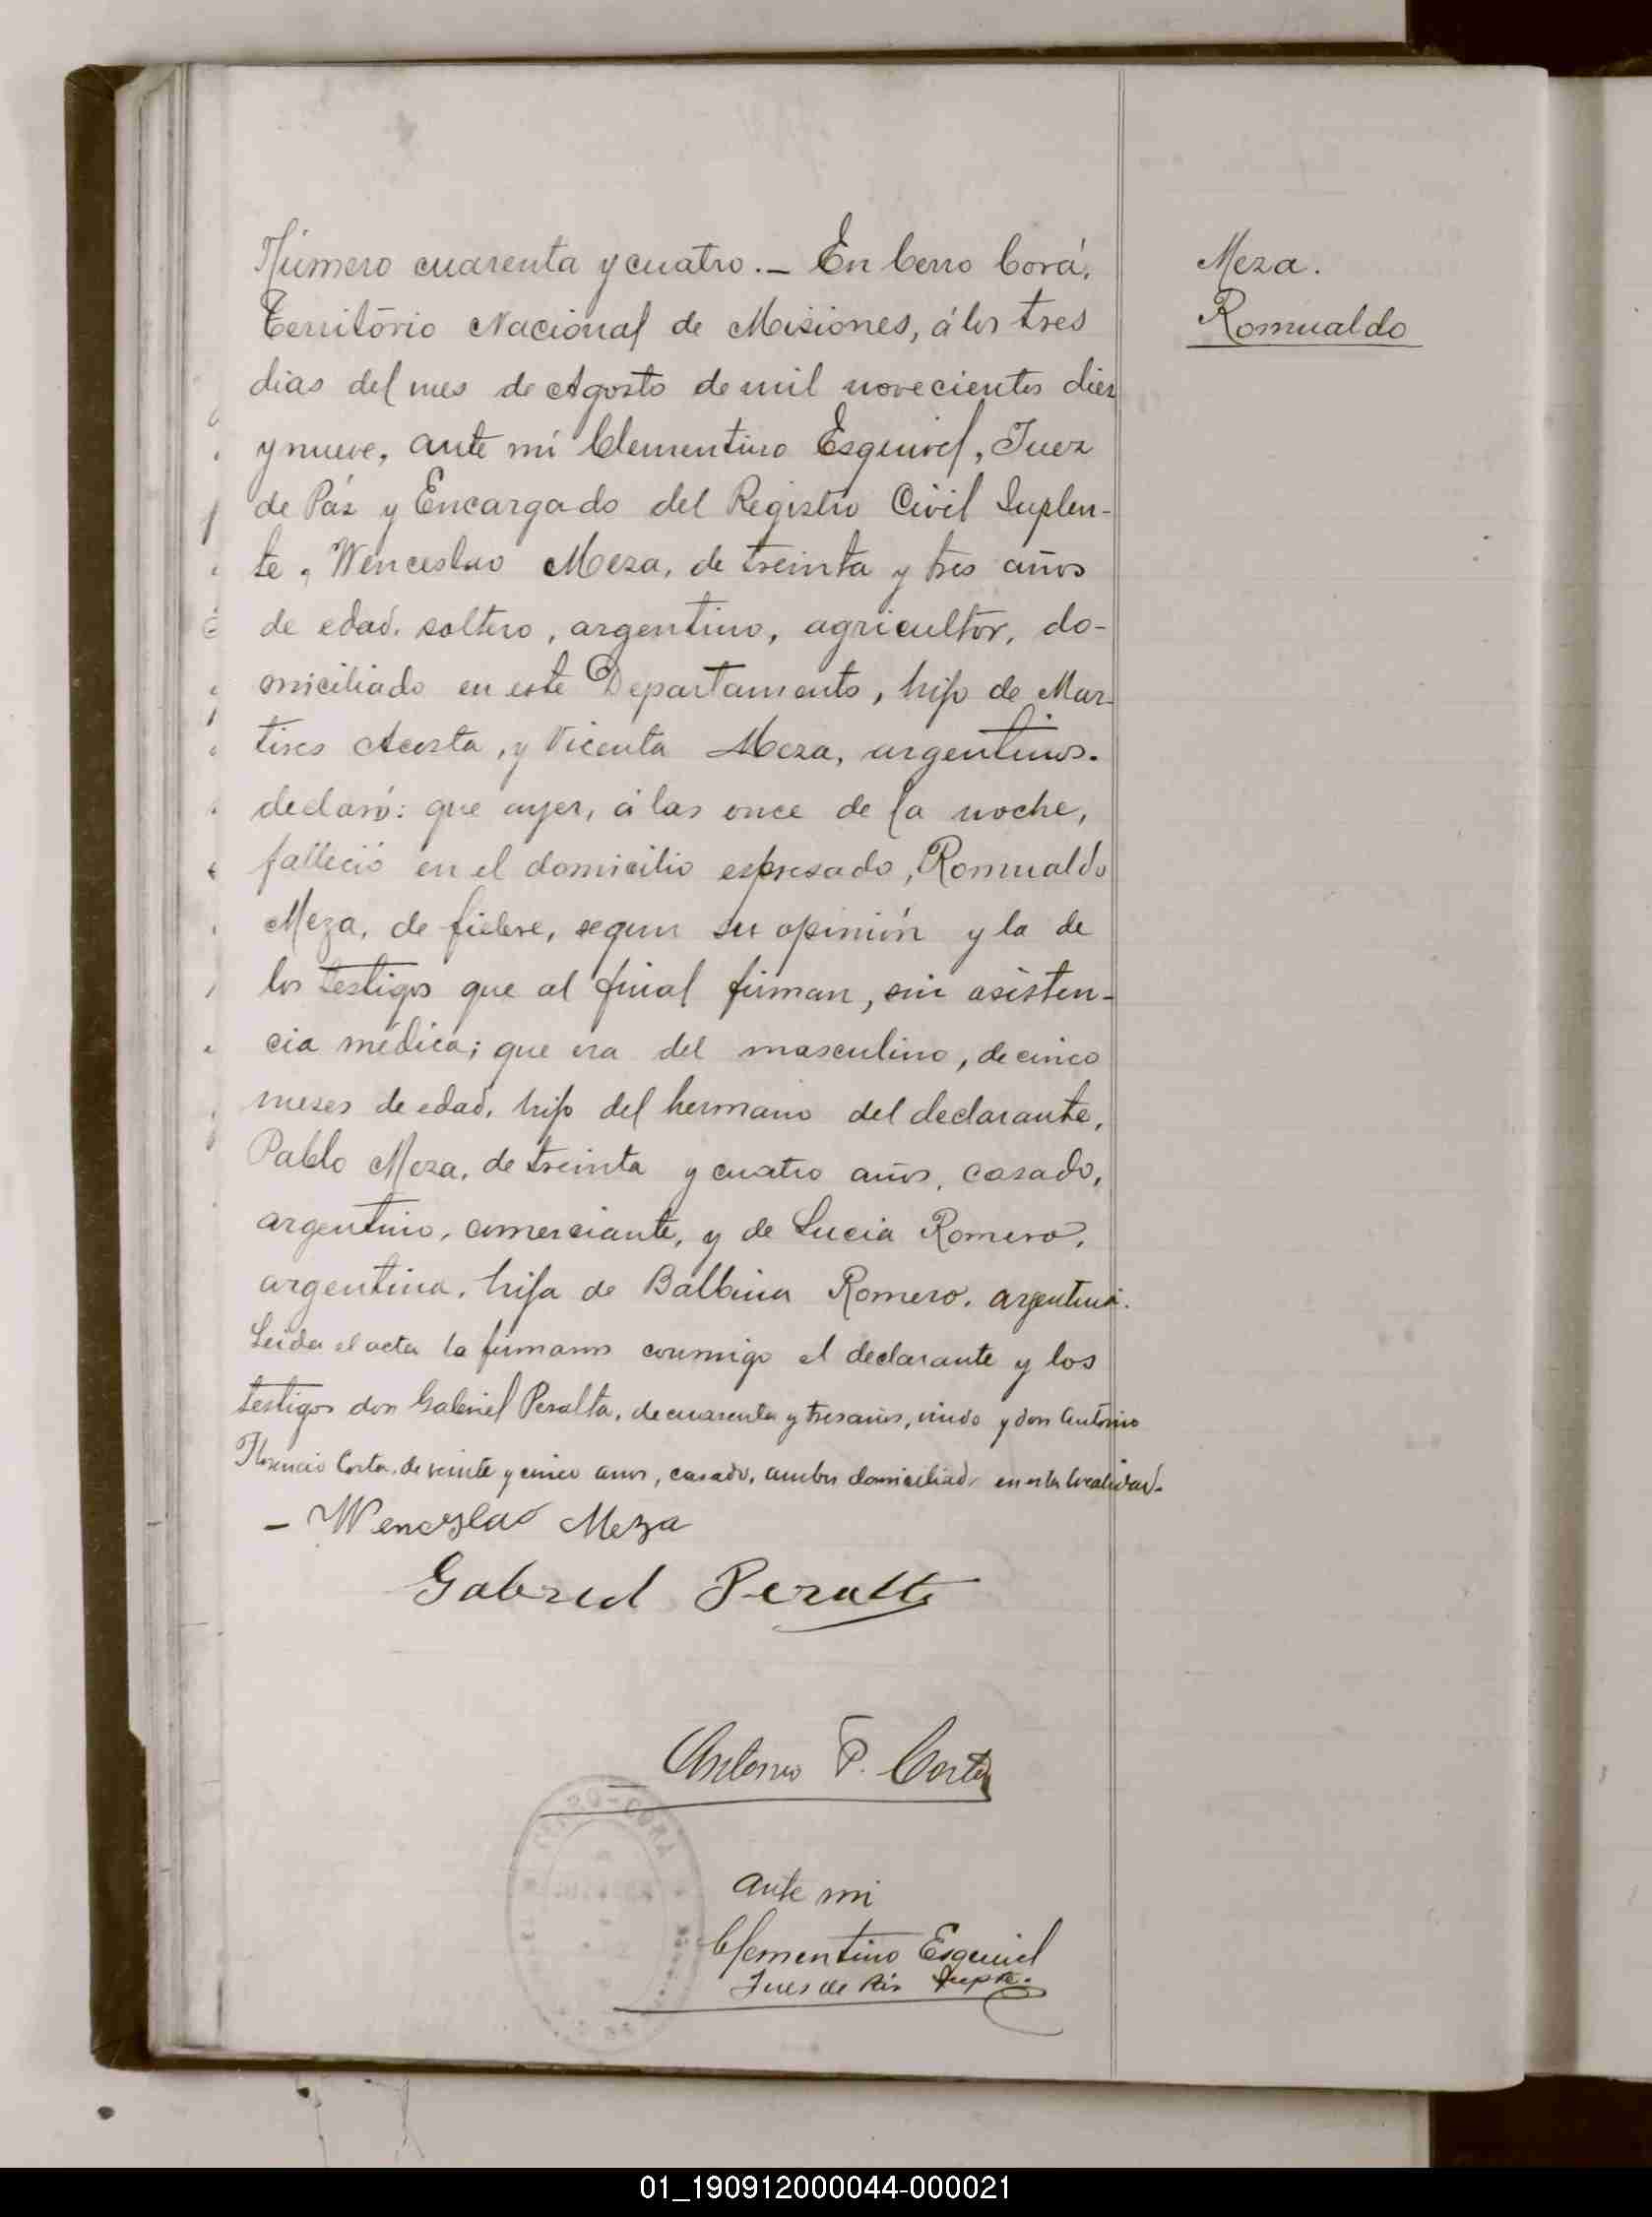 Número cuarenta y cuatro.— En Cerro Corá,
Território Nacional de Misiones, á los tres
dias del mes de Agosto de mil novecientos diez
y nueve, ante mí Clementino Esquivel, Juez
de Páz y Encargado del Registro Civil Suplen-
te, Wenceslao Meza, de treinta y tres años
de edad, soltero, argentino, agricultor, do-
miciliado en este Departamento, hijo de Mar-
tires Acosta, y Vicenta Meza, argentinos.
declaró: que ayer, á las once de la noche,
falleció en el domicilio espresado, Romualdo
Meza, de fiebre, segun su opinión y la de
los testigos que al final firman, sin asisten-
cia médica; que era del masculino, de cinco
meses de edad, hijo del hermano del declarante,
Pablo Meza, de treinta y cuatro años, casado,
argentino, comerciante, y de Lucia Romero,
argentina, hija de Balbina Romero, argentina.
Leida el acta la firmaron conmigo el declarante y los
testigos don Gabriel Peralta, de cuarenta y tres años, viudo y don Antonio
Florencio Cortes, de veinte y cinco años, casado, ambos domiciliados en esta localidad.
— Wenceslao Meza
Gabriel Peralta
Antonio F. Cortes
ante mi
Clementino Esquivel
Jues de Pás Supte.
CERRO-CORÁ
Meza.
Romualdo
01_190912000044-000021